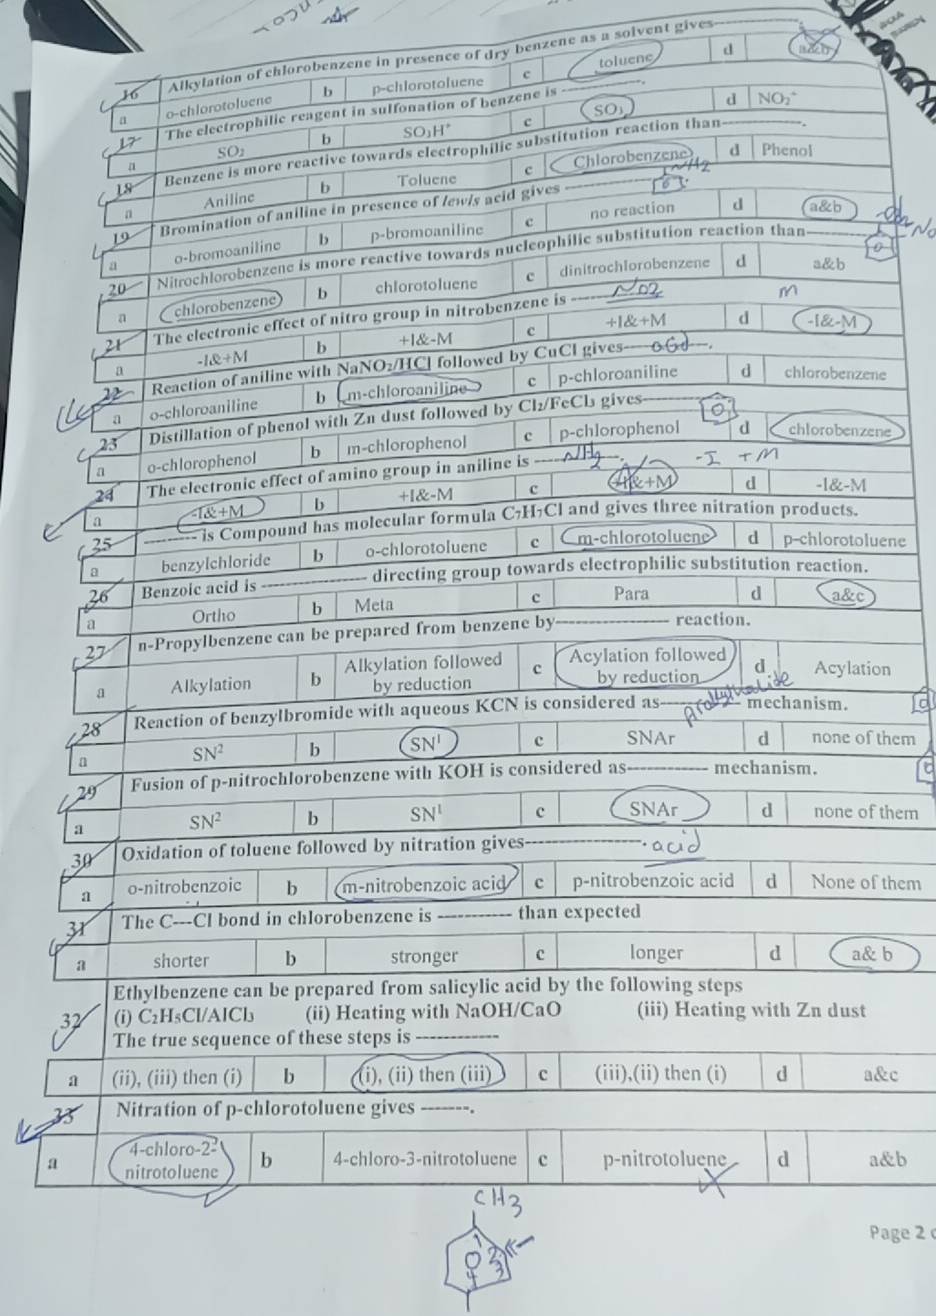 16 Alkylation of chlorobenzene in presence of dry benzene as a solvent gives----------
a o-chlorotoluene b p-chlorotoluene c toluene d a&b
17 The electrophilic reagent in sulfonation of benzene is ----------.
a SO₂ b SO₃H⁺ c SO₃ d NO₂⁺
18 Benzene is more reactive towards electrophilic substitution reaction than----------.
a Aniline b Toluene c Chlorobenzene d Phenol
NH2
19 Bromination of aniline in presence of lewis acid gives ----------
a o-bromoaniline b p-bromoaniline c no reaction d a&b
20 Nitrochlorobenzene is more reactive towards nucleophilic substitution reaction than----------
a chlorobenzene b chlorotoluene c dinitrochlorobenzene d a&b
21 The electronic effect of nitro group in nitrobenzene is ---------- NO2 m
a -I&+M b +I&-M c +I&+M d -I&-M
22 Reaction of aniline with NaNO₂/HCl followed by CuCl gives----------.
a o-chloroaniline b m-chloroaniline c p-chloroaniline d chlorobenzene
23 Distillation of phenol with Zn dust followed by Cl₂/FeCl₃ gives----------
a o-chlorophenol b m-chlorophenol c p-chlorophenol d chlorobenzene
24 The electronic effect of amino group in aniline is ---------- NH2 -I +M
a -I&+M b +I&-M c +I&+M d -I&-M
25 ---------- is Compound has molecular formula C₇H₇Cl and gives three nitration products.
a benzylchloride b o-chlorotoluene c m-chlorotoluene d p-chlorotoluene
26 Benzoic acid is ---------- directing group towards electrophilic substitution reaction.
a Ortho b Meta c Para d a&c
27 n-Propylbenzene can be prepared from benzene by---------- reaction.
a Alkylation b Alkylation followed by reduction c Acylation followed by reduction d Acylation
28 Reaction of benzylbromide with aqueous KCN is considered as---------- mechanism.
a SN² b SN¹ c SNAr d none of them
29 Fusion of p-nitrochlorobenzene with KOH is considered as---------- mechanism.
a SN² b SN¹ c SNAr d none of them
30 Oxidation of toluene followed by nitration gives----------. acid
a o-nitrobenzoic b m-nitrobenzoic acid c p-nitrobenzoic acid d None of them
31 The C---Cl bond in chlorobenzene is ---------- than expected
a shorter b stronger c longer d a& b
Ethylbenzene can be prepared from salicylic acid by the following steps
32 (i) C₂H₅Cl/AlCl₃ (ii) Heating with NaOH/CaO (iii) Heating with Zn dust
The true sequence of these steps is ----------
a (ii), (iii) then (i) b (i), (ii) then (iii) c (iii),(ii) then (i) d a&c
33 Nitration of p-chlorotoluene gives -------.
a 4-chloro-2-nitrotoluene b 4-chloro-3-nitrotoluene c p-nitrotoluene d a&b
CH3
1
2
3
4
Page 2